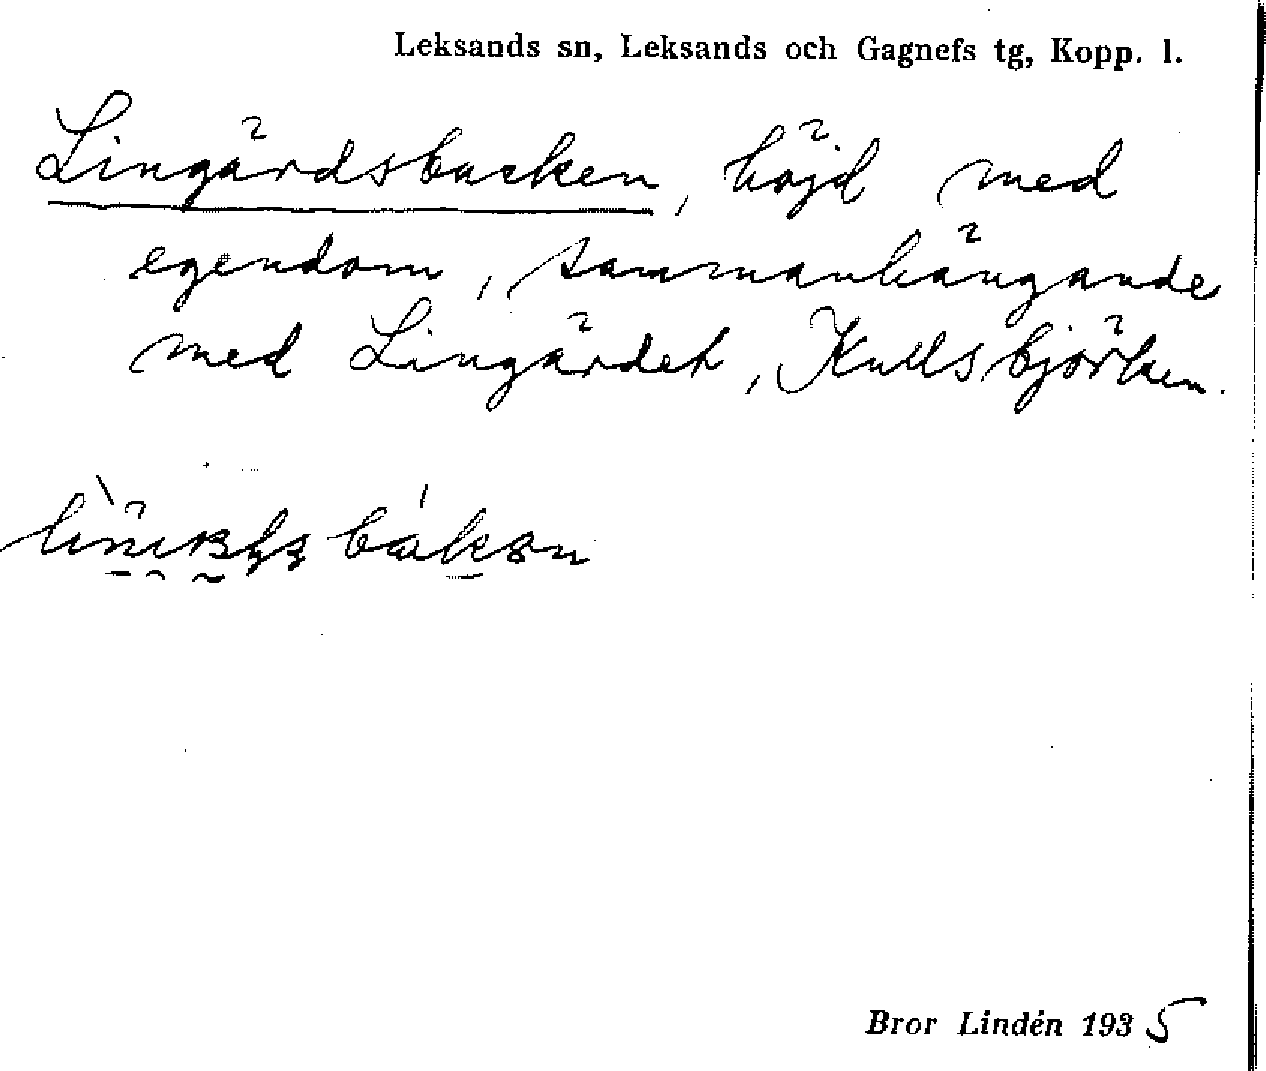 Leksands sn, Leksands och Gagnefs tg, Kopp. l.
Lingärdsbacken, höjd med
egendom, sammanhängande
med Lingärdet, Kullsbjörken.
Bror Lindén 1935